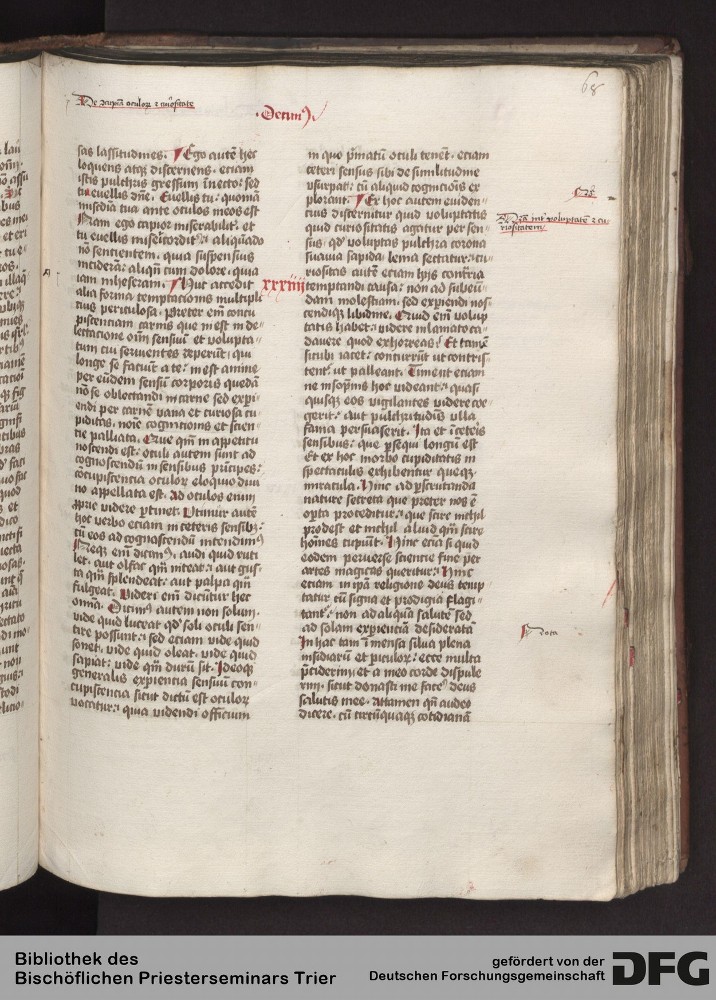 68
De ɔcupīa oculoꝝ ⁊ c̄uositate
Decimꝰ
sas lassitudines. Ego autē hec
loquens atqꝫ discernens. eciam
istis pulchris gressum īnecto: sed
tu euellis dn̄e. Euellis tu: quoniā
miẜdia tua ante oculos meos est
Nam ego capior miserabiliṫ: et
tu euellis miẜicorditṫ: aliquādo
nō sentientem. quia suspensius
incideraꝫ: aliqn̄ cum dolore. quia
iam inheseram. Huc accedit
alia forma temptacionis multiplici
cius periculosa. Preter em̄ concu
piscenciam carnis que inest in de-
lectacione oīm sensuū et volupta-
tum cui seruientes depereūt: qui
longe se faciūt a te: inest anime
per eūdem sensū corporis quedā
nō se oblectandi in carne sed expi-
endi per carnē vana et curiosa cu-
piditas. noīe cognicionis et scien-
cie palliata. Que qm̄ in appetitu
noscendi est: oculi autem sunt ad
cognoscendū in sensibus prīcipes:
ɔcupiscencia oculoꝝ eloquio diui
no appellata est. Ad oculos enim
ꝓprie videre ꝑtinet. Utimur autē
hoc verbo eciam in ceteris sensibꝫ:
cū eos ad cognoscendū intendimꝰ
Neqꝫ em̄ dicimꝰ. audi quid ruti
let. aut olfac qm̄ niteat: aut gus-
ta qm̄ splendeat: aut palpa qm̄
fulgeat. Uideri em̄ dicūtur hec
omīa. Dicimꝰ autem non solum.
vide quid luceat qd̓ soli oculi sen-
tire possunt: sed eciam vide quid
sonet. vide quid oleat. vide quid
sapiat: vide qm̄ durū sit. Ideoqꝫ
generalis expiencia sensuū con-
cupiscencia sicut dictū est oculoꝝ
vocatur: quia videndi officium
xxxiiii
in quo p̄matū oculi tenēt. eciam
ceteri sensus sibi de similitudine
vsurpāt: cū aliquid cognicionis ex
plorant. Ex hoc autem euiden-
cius discernitur quid voluptatis
quid curiositatis agatur per sen-
sus. qd̓ voluptas pulchra conora
suauia sapida lenia sectatur: cu-
riositas autē eciam hijs contraria
temptandi causa: non ad subeū-
dam molestiam. sed expiendi nos-
cendiqꝫ libidine. Quid em̄ volup
tatis habet: videre in laniato ca-
dauere quod exhorreas? Et tamē
sicubi iacet: concurrūt ut contris-
tent̉. ut palleant. Timent eciam
ne in sopnis hoc videant: quasi
quisqꝫ eos vigilantes videre coe-
gerit: aut pulchritudinis vlla
fama persuaserit. Ita et ī ceteris
sensibus: que ꝑsequi longū est
Et ex hoc morbo cupiditatis in
spectaculis exhibentur queqꝫ
miracula. Hinc ad ꝑscrutanda
nature secreta que preter nos ē
oꝑta proceditur: que scire nichil
prodest et nichil aliud qm̄ scire
hoīnes cupiūt. Hinc eciā si quid
eodem peruerse sciencie fine per
artes magicas queritur: Hinc
eciam in ip̄a religione deus temp
tatur cū signa et prodigia flagi-
tant̉: non ad aliquā salutē sed
ad solam expienciā desiderata
In hac tam īmensa silua plena
insidiarū et piculoꝝ: ecce multa
p̄cideri et a meo corde dispule
rim: sicut donasti me facē deus
salutis mee. Attamen qn̄ audeo
dicere. cū circūquaqꝫ cotidianā
Dr̄am int̓ voluptatē ⁊ cu-
riositatem
Nota
Bibliothek des
Bischöflichen Priesterseminars Trier
gefördert von der
Deutschen Forschungsgemeinschaft
DFG